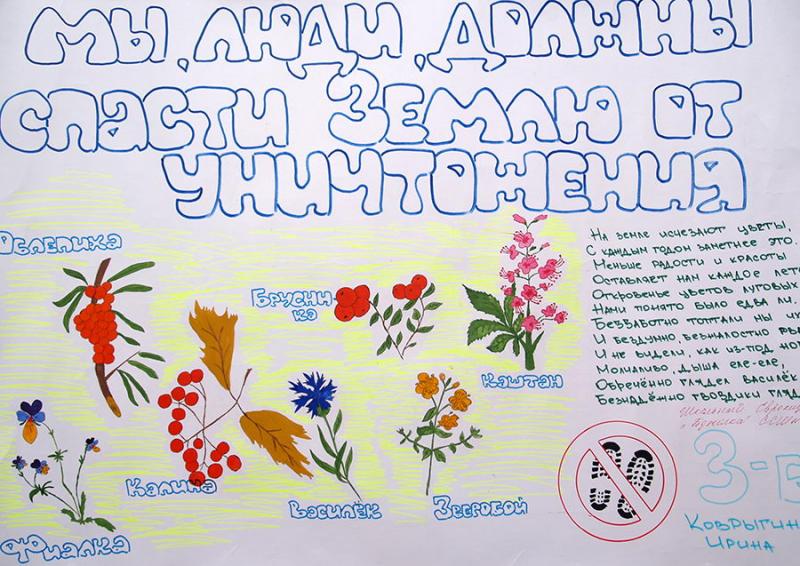 Мы, люди, должны
спасти Землю от
уничтожения
Облепиха
Брусни
ка
Каштан
Калина
Василёк
Зверобой
Фиалка
На земле исчезают цветы,
С каждым годом заметнее это.
Меньше радости и красоты
Оставляет нам каждое лето
Откровенье цветов луговых
Нами понято было едва ли.
Беззаботно топтали мы их
И бездумно, безжалостно рв
И не видели, как из-под ног
Молчаливо, дыша еле-еле,
Обречённо глядел василёк
Безнадёжно гвоздики гляде
Школьный
3-
Ковригина
Ирина